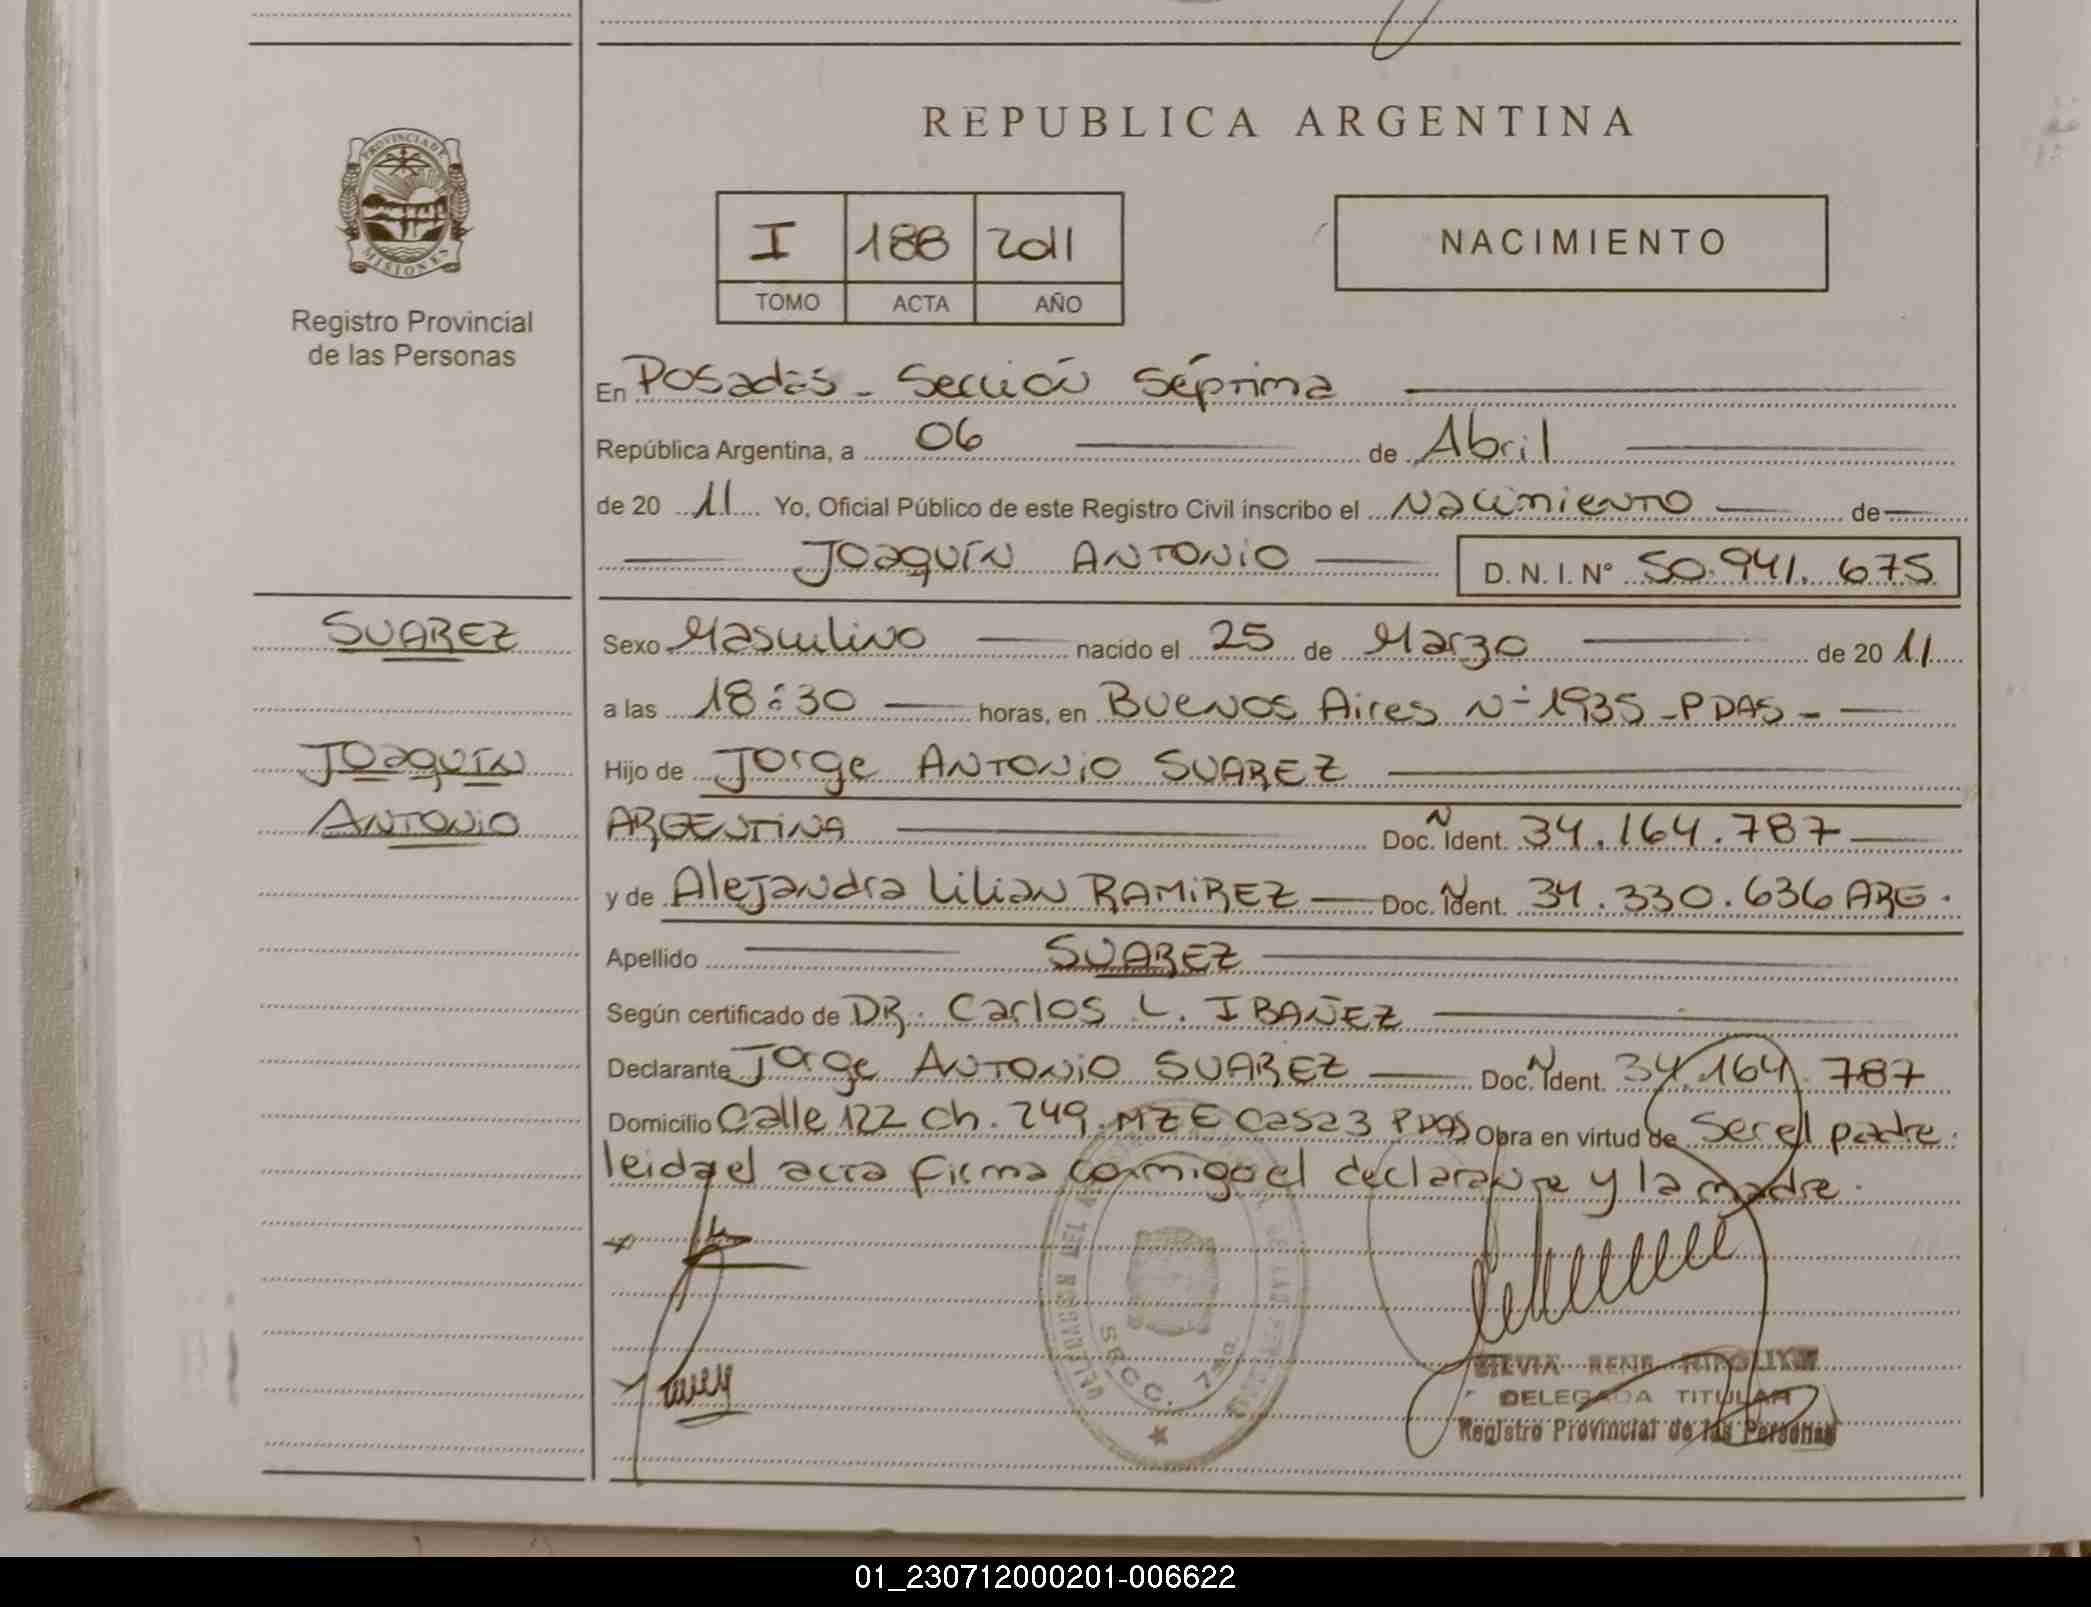 REPUBLICA ARGENTINA
PROVINCIA DE
MISIONES
Registro Provincial
de las Personas
I 188 2011
TOMO ACTA AÑO
NACIMIENTO
En Posadas - Sección Séptima
República Argentina, a 06 de Abril
de 20 11 Yo, Oficial Público de este Registro Civil inscribo el Nacimiento de
JOAQUÍN ANTONIO D.N.I.Nº 50.941.675
SUAREZ
JOAQUÍN
ANTONIO
Sexo Masculino nacido el 25 de Marzo de 20 11
a las 18:30 horas, en BUENOS Aires Nº 1935 - PDAS -
Hijo de Jorge ANTONIO SUAREZ
ARGENTINA Doc. N Ident. 34.164.787
y de Alejandra Lilian RAMIREZ Doc. N Ident. 34.330.636 ARG.
Apellido SUAREZ
Según certificado de DR. Carlos L. IBAÑEZ
Declarante Jorge ANTONIO SUAREZ Doc. N Ident. 34.164.787
Domicilio Calle 122 Ch. 249. MZ E Casa 3 PDAS Obra en virtud de Ser el padre.
leida el acta firma conmigo el declarante y la madre.
SECC. 7ma
DELEGADA TITULAR
Registro Provincial de las Personas
01_230712000201-006622